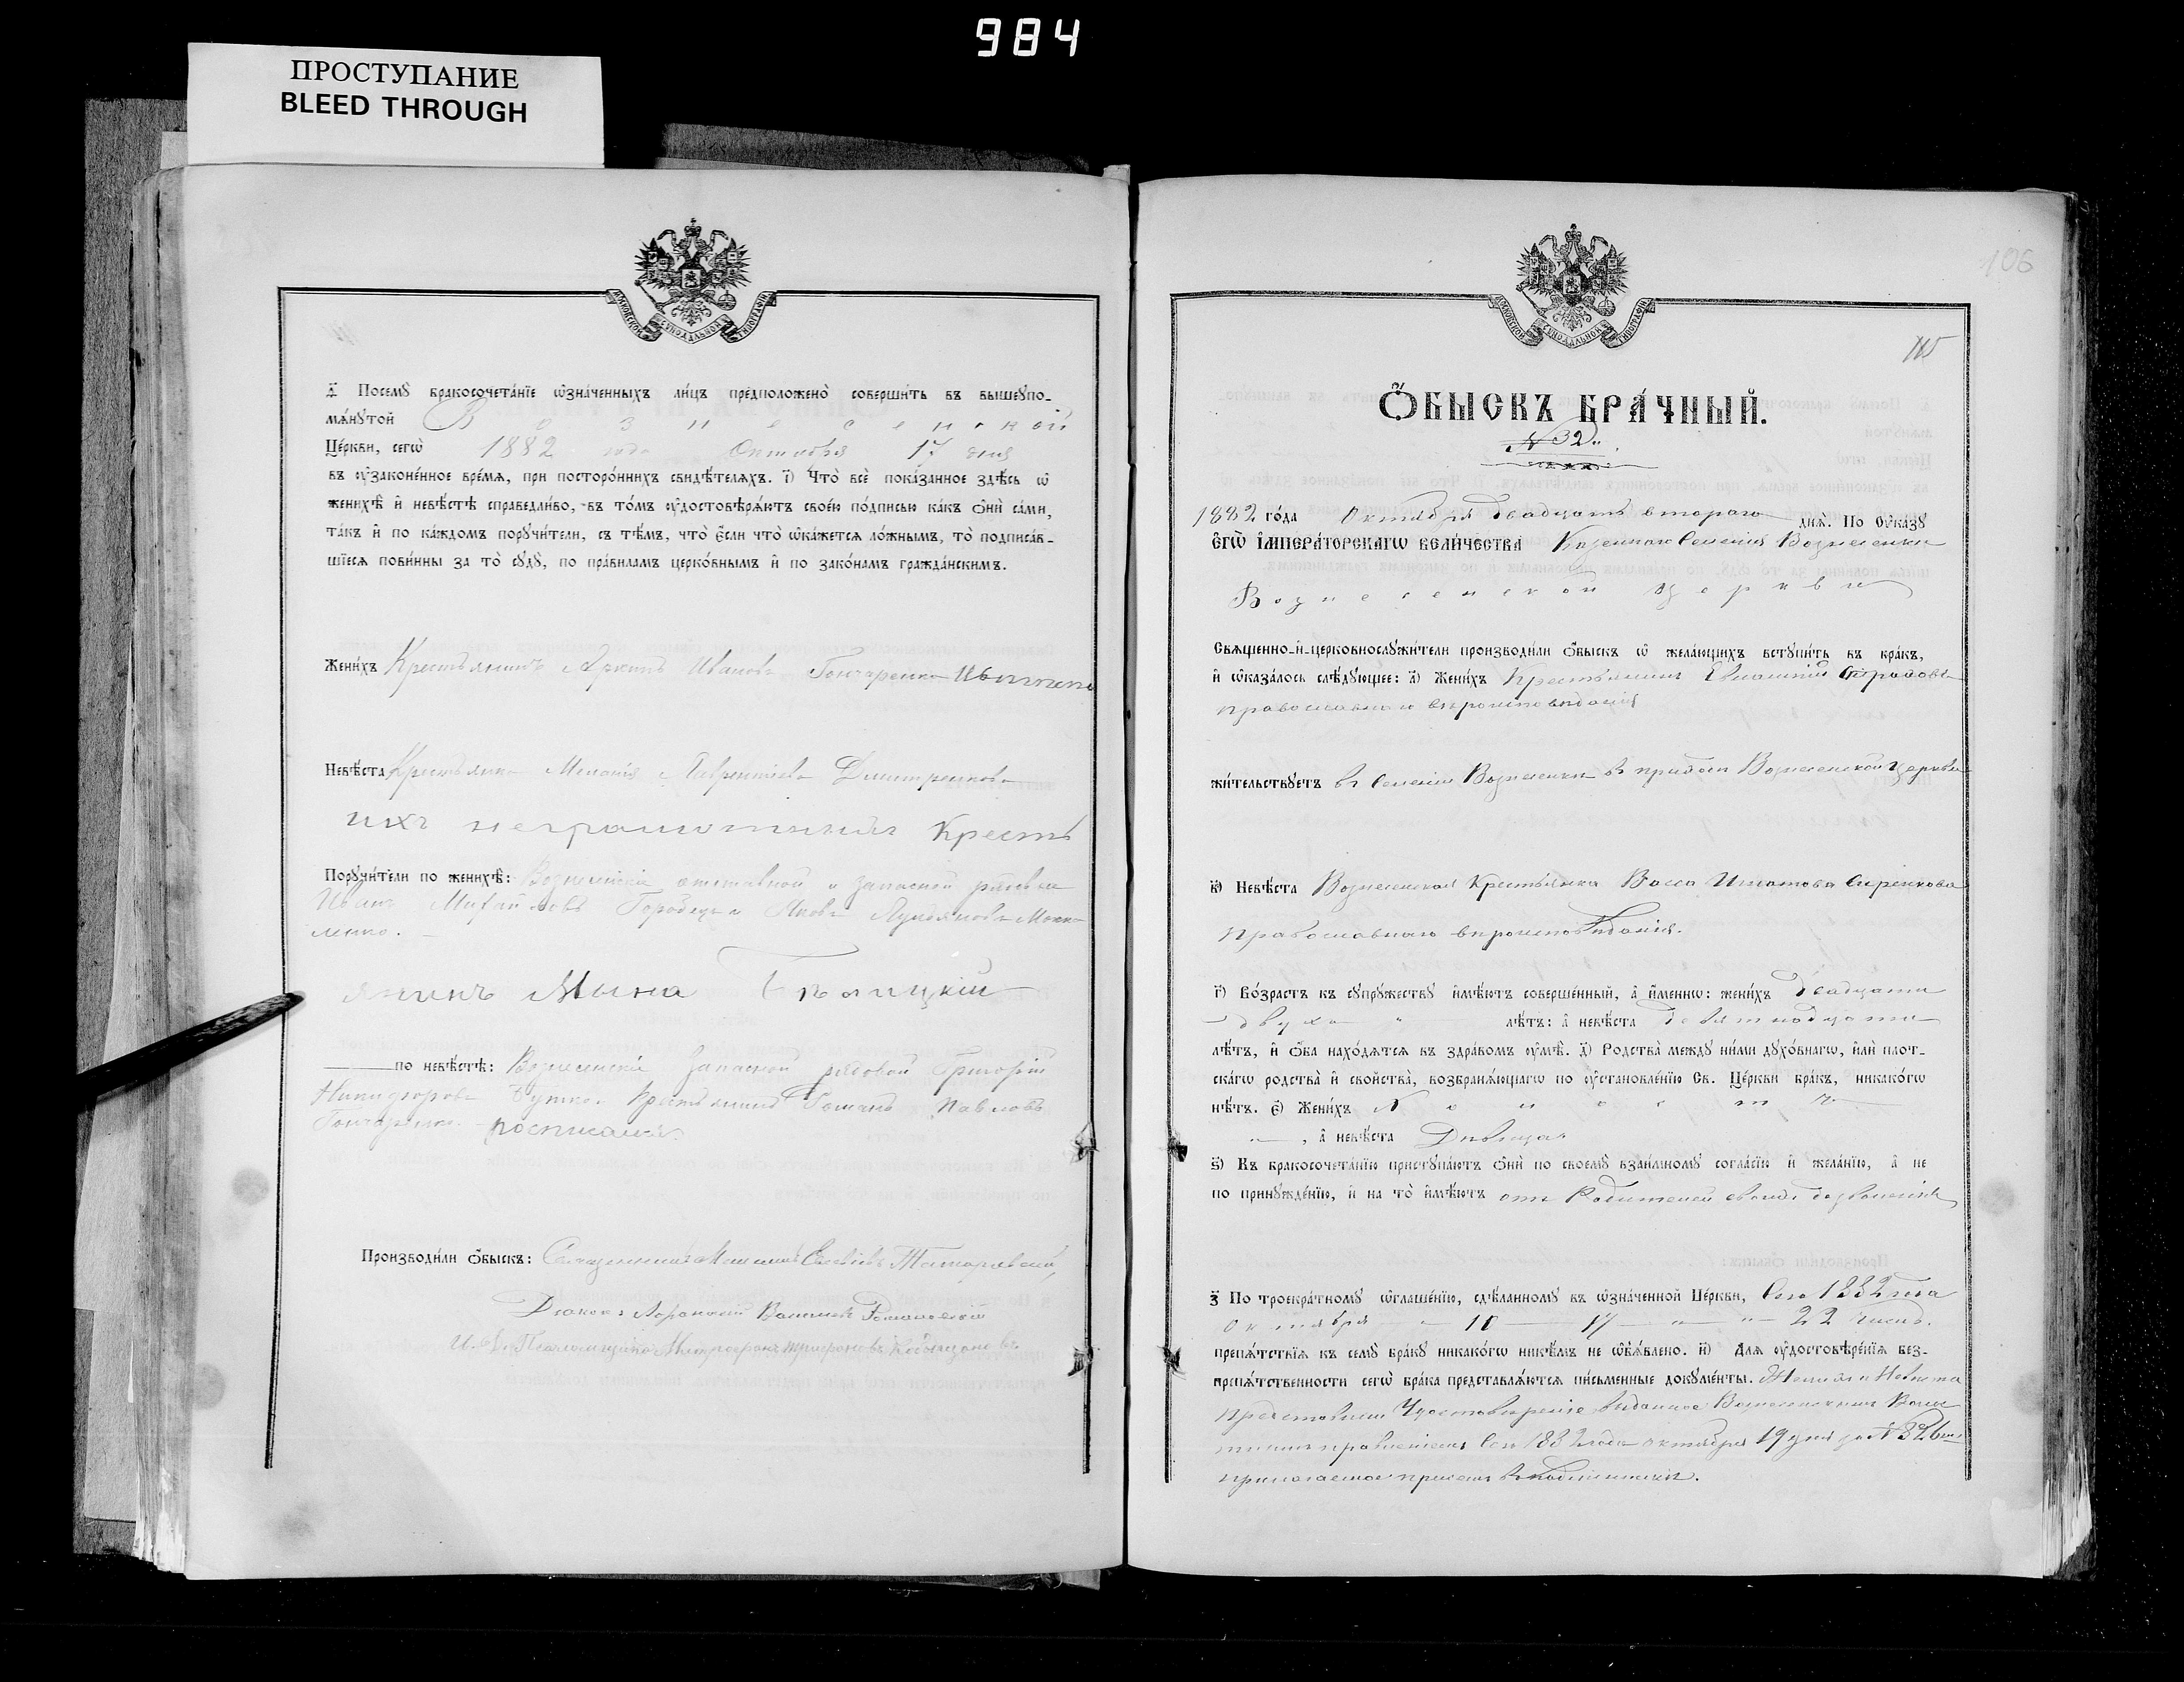 984
ПРОСТУПАНИЕ
BLEED THROUGH
МОСКОВСКОЙ СѴНОДАЛЬНОЙ ТИПОГРАФІИ
ѳ҃) Посемꙋ̀ бракосочета́нїе ѡ҆зна́ченныхъ ли́цъ предположено̀ соверши́ть въ вышеꙋпо-
мѧ́нꙋтой Вознесенской
Це́ркви, сегѡ̀ 1882 года Октября 17 дня
въ ᲂу҆законе́нное вре́мѧ, при посторо́ннихъ свидѣ́телѧхъ. і҃) Что̀ всѐ пока́занное здѣ́сь ѡ҆
женихѣ̀ и҆ невѣ́стѣ справедли́во, въ то́мъ ᲂу҆достовѣрѧ́ютъ свое́ю по́дписью ка́къ ѻ҆нѝ са́ми,
та́къ и҆ по ка́ждомъ порꙋчи́тели, съ тѣ́мъ, что̀ є҆́сли что̀ ѡ҆ка́жетсѧ ло́жнымъ, то̀ подписа́в-
шїесѧ пови́нны за то̀ сꙋдꙋ̀, по пра́виламъ церко́внымъ и҆ по зако́намъ гражда́нскимъ.
Жени́хъ Крестьянинъ Иванов Гончаренко
Невѣ́ста Крестьянка Меланія Лаврентіева Дмитренкова
ихъ неграмотныхъ Кресть
Порꙋчи́тели по женихѣ̀: Вознесенскіе отставной и запасной рядовые
Иванъ Михайловъ Городецъ и Яковъ
янинъ Мына Бѣлицкій
по невѣ́стѣ: Вознесенскіе запасной рядовой Григорій
Никифоровъ Крестьянинъ Романъ Павловъ
Гончаренко росписался.
Производи́ли ѻ҆́быскъ: Священникъ
Діаконъ Романовскій
И. Д. Псаломщика Митрофанъ
106
115
МОСКОВСКОЙ СѴНОДАЛЬНОЙ ТИПОГРАФІИ
Ѻ҆́БЫСКЪ БРА́ЧНЫЙ.
№ 32.
1882 го́да Октября двадцать втораго днѧ̀. По ᲂу҆ка́зꙋ
є҆гѡ̀ і҆мпера́торскагѡ вели́чества Казенного Селенія Вознесенки
Вознесенской Церкви
Свѧщенно-и҆-церковнослꙋжи́тели производи́ли ѻ҆́быскъ ѡ҆ жела́ющихъ встꙋпи́ть въ бра́къ,
и҆ ѡ҆каза́лось слѣ́дꙋющее: а҃) Жени́хъ Крестьянинъ
православнаго вѣроисповѣданія
жи́тельствꙋетъ въ Селеніи Вознесенки въ приходѣ Вознесенской Церкви
в҃) Невѣ́ста Вознесенская Крестьянка Васса Игнатова
Православнаго вѣроисповѣданія.
г҃) Во́зрастъ къ сꙋпрꙋ́жествꙋ и҆мѣ́ютъ соверше́нный, а҆ и҆́меннѡ: жени́хъ двадцати
двухъ лѣ́тъ: а҆ невѣ́ста девятнадцати
лѣ́тъ, и҆ ѻ҆́ба нахо́дѧтсѧ въ здра́вомъ ᲂу҆мѣ̀. д҃) Родства̀ междꙋ̀ ни́ми дꙋхо́внагѡ, и҆лѝ плот-
ска́гѡ родства̀ и҆ сво́йства̀, возбранѧ́ющагѡ по ᲂу҆становле́нїю Св. Це́ркви бра́къ, никако́гѡ
нѣ́тъ. є҃) Жени́хъ Холостъ
, а҆ невѣ́ста Дѣвица
ѕ҃) Къ бракосочета́нїю пристꙋпа́ютъ ѻ҆нѝ по своемꙋ̀ взаи́мномꙋ согла́сїю и҆ жела́нїю, а҆ не
по принꙋжде́нїю, и҆ на то̀ и҆мѣ́ютъ отъ Родителей своихъ дозволеніе
з҃) По троекра́тномꙋ ѡ҆глаше́нїю, сдѣ́ланномꙋ въ ѡ҆зна́ченной Це́ркви, Сего 1882 года
октября 10 17 22 числъ.
препѧ́тствїѧ къ семꙋ̀ бра́кꙋ никако́гѡ никѣ́мъ не ѡ҆б̾ѧ́влено. и҃) Длѧ ᲂу҆достовѣре́нїѧ без-
препѧ́тственности сегѡ̀ бра́ка представлѧ́ютсѧ пи́сьменные докꙋме́нты. Женихъ и Невѣста
представили Удостовѣреніе выданное Вознесенскимъ Волос
тнымъ правленіемъ Сего 1882 года октября 19 дня за № 826
прилагаемое при семъ въ подлинникѣ.